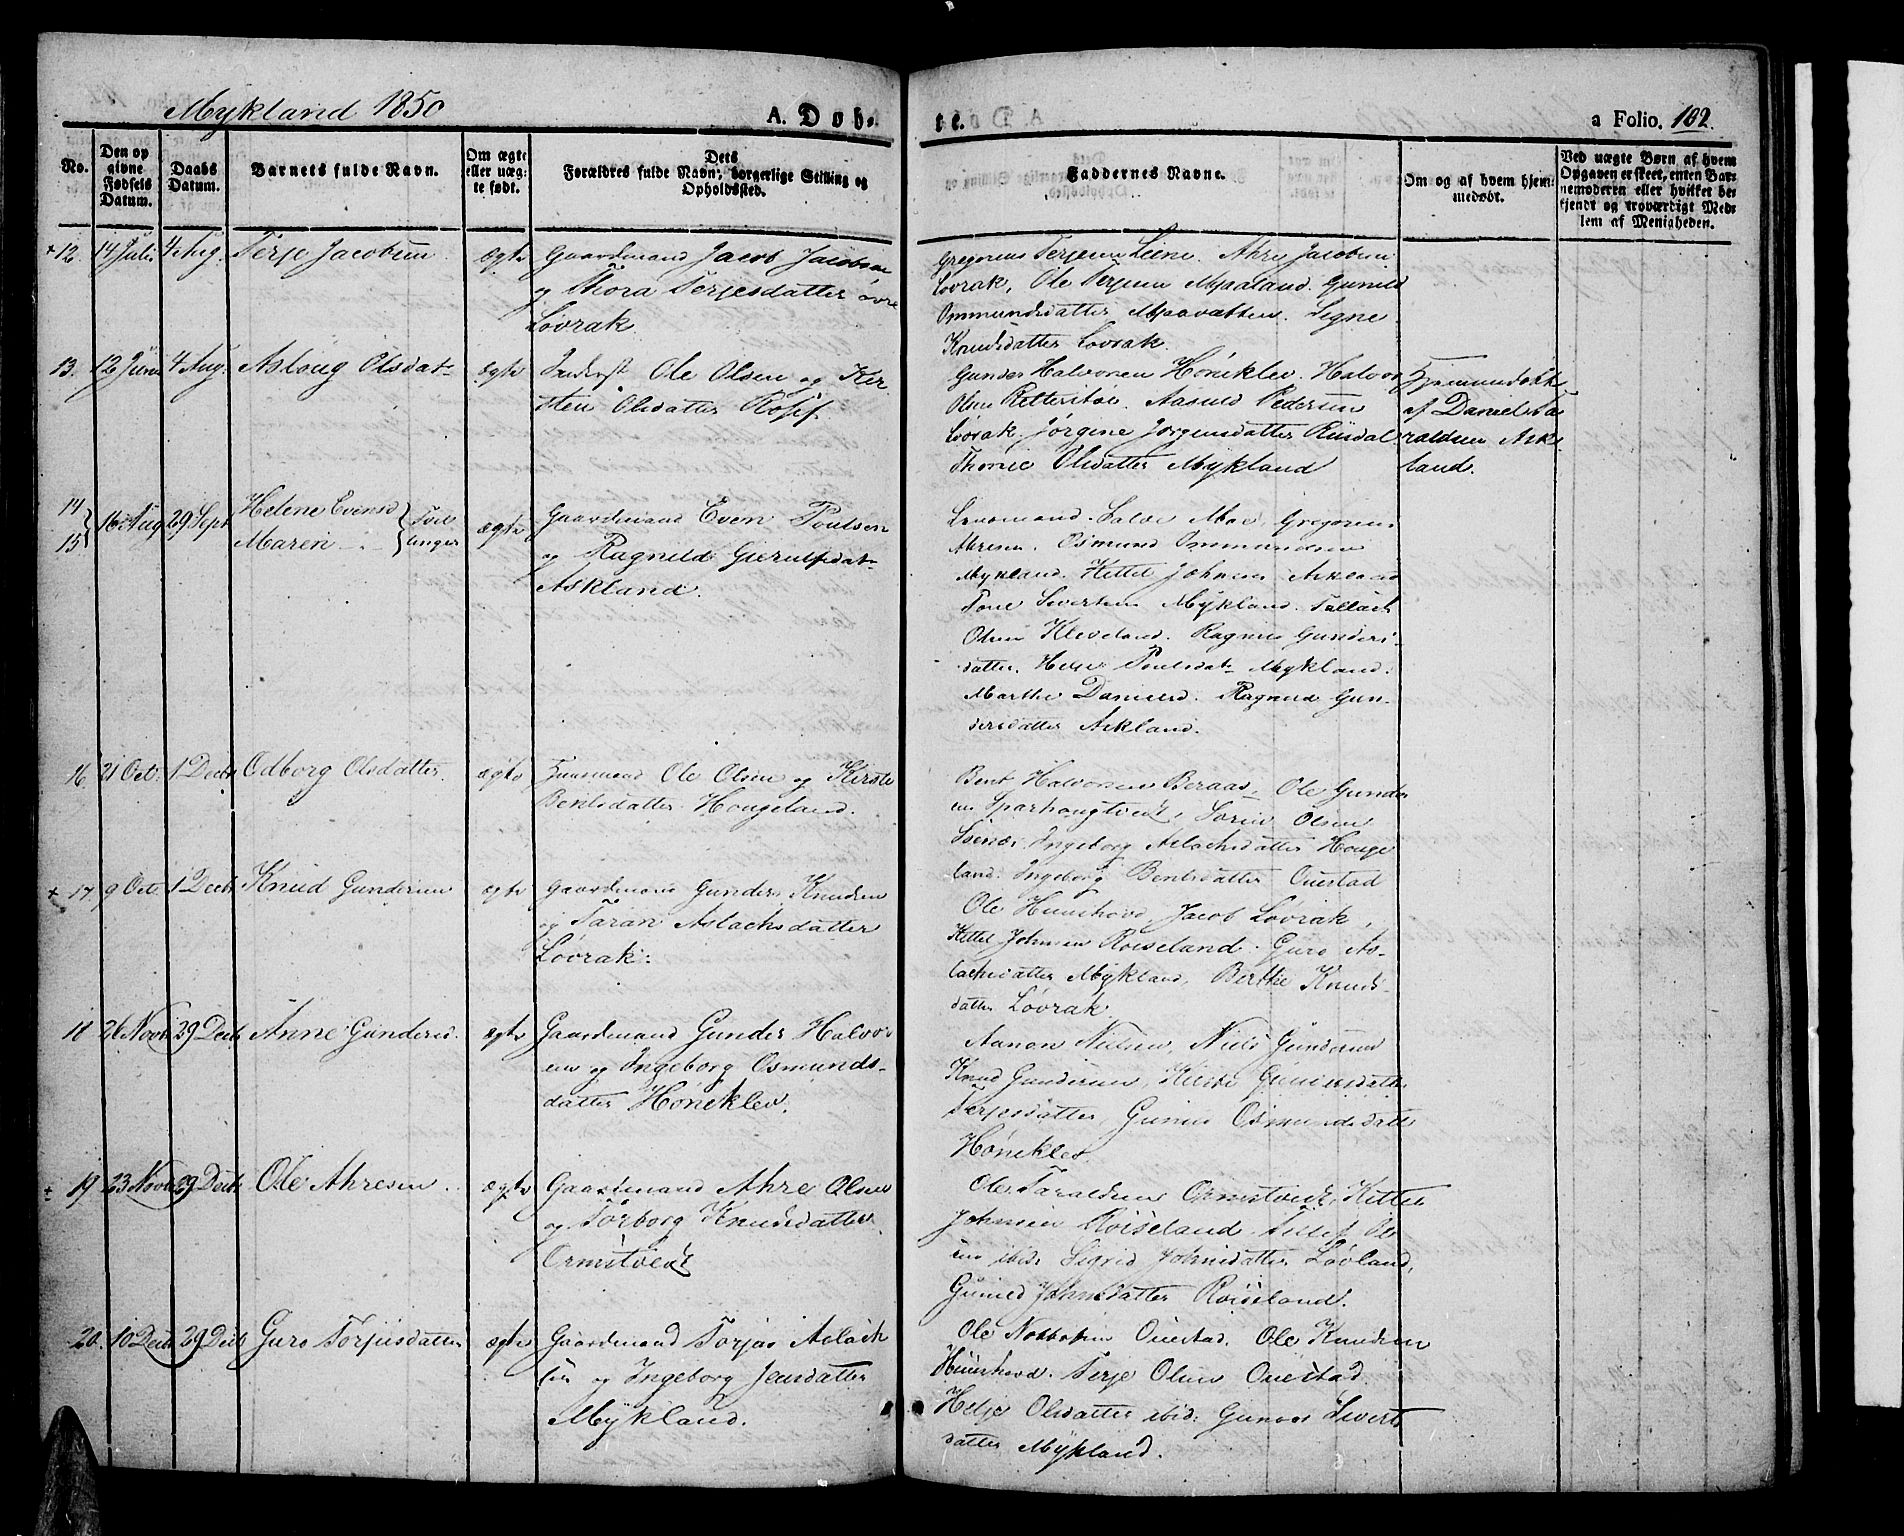 Mykland 1850
A. Døb-
te.
a Folio. 102.
No.
Den op
givne
Fødsels
Datum.
Daabs
Datum.
Barnets fulde Navn.
Om ægte
eller uæg-
te født.
Dets
Forældres fulde Navn, borgerlige Stilling og
Opholdssted.
Faddernes Navne.
Om og af hvem hjem-
medøbt.
Ved uægte Børn af hvem
Opgaven er skeet, enten Bar-
nemoderen eller hvilket be-
kjendt og troværdigt Med-
lem af Menigheden.
+ 12. 14 Juli 4 Aug. Terje Jacobsen ægte Gaardmand Jacob Jacobsen
og Thora Terjesdatter øvre
Lovrak
Gregorius Terjesen Leine. Ahre Jacobsen
Lovrak, Ole Terjesen Mjaaland. Gunild
Ommundsdatter Mjaavatten. Signe
Knudsdatter Lovrak.
13. 12 Juni 4 Aug. Aslaug Olsdat- ægte Inderst Ole Olsen og Kir
sten Olsdatter
Gunder Halvorsen Høneklev. Halvor
Olsen Retterstøl. Aasuld Pedersen
Lovrak. Jørgine Jørgensdatter Risdal
Thorie Olsdatter Mykland
Hjemmedøbt
af Daniel Ta
raldsen Ask
land.
14
15 16 Aug 29 Sept Helene Evensd
Maren -"- Tvil
linger ægte Gaardmand Even Poulsen
og Ragnild Gierulfsdat-
Askland.
Salve Moe, Gregorius
Ahresen. Osmund Ommundsen
Mykland. Kittel Johnsen Askland
Tone Sivertsen Mykland. Tallack
Olsen Kleveland. Ragnild Gunders-
datter. Helje Poulsdat- Mykland.
Marthe Danielsd. Ragnild Gun-
dersdatter Askland.
16 21 Oct. 1 Decbr Odborg Olsdatter. ægte Huusmand Ole Olsen og Kirste
Bentsdatter Hougeland.
Bent Halvorsen Beraas, Ole Gunder
sen Sparhougtvedt, Søren Olsen
Ingeborg Aslachsdatter Houge
land. Ingeborg Bentsdatter Ouestad
+ 17. 9 Oct. 1 Decbr Knud Gundersen ægte Gaardmand Gunder Knudsen
og Taran Aslachsdatter
Lovrak.
Ole Huushovd, Jacob Lovrak,
Kittel Johnsen Roiseland. Guro As-
lachsdatter Mykland, Berthe Knuds-
datter Lovrak.
18 26 Novbr 29 Decbr Anne Gundersd. ægte Gaardmand Gunder Halvor
sen og Ingeborg Osmunds-
datter Høneklev.
Aanon Nielsen, Niels Gundersen
Knud Gundersen, Kirsti
Terjesdatter, Gunild Osmundsdatter
Høneklev
+ 19 23 Novbr 29 Decbr Ole Ahresen. ægte Gaardmand Ahre Olsen
og Torborg Knudsdatter
Ormstvedt
Ole Taraldsen Ormstvedt, Kittel
Johnsen Roiseland, Tellef Ol
sen ibid. Sigrid Johnsdatter Løvland,
Gunild Johnsdatter Roiseland.
20. 10 Decbr 29 Decbr Guro Torjusdatter ægte Gaardmand Torjus Aslach
sen og Ingeborg Jensdatter
Mykland.
Ole Ouestad. Ole Knudsen
Huushovd. Terje Olsen Ouestad.
Helje Olsdatter ibid: Gunvor Sivert
datter Mykland.